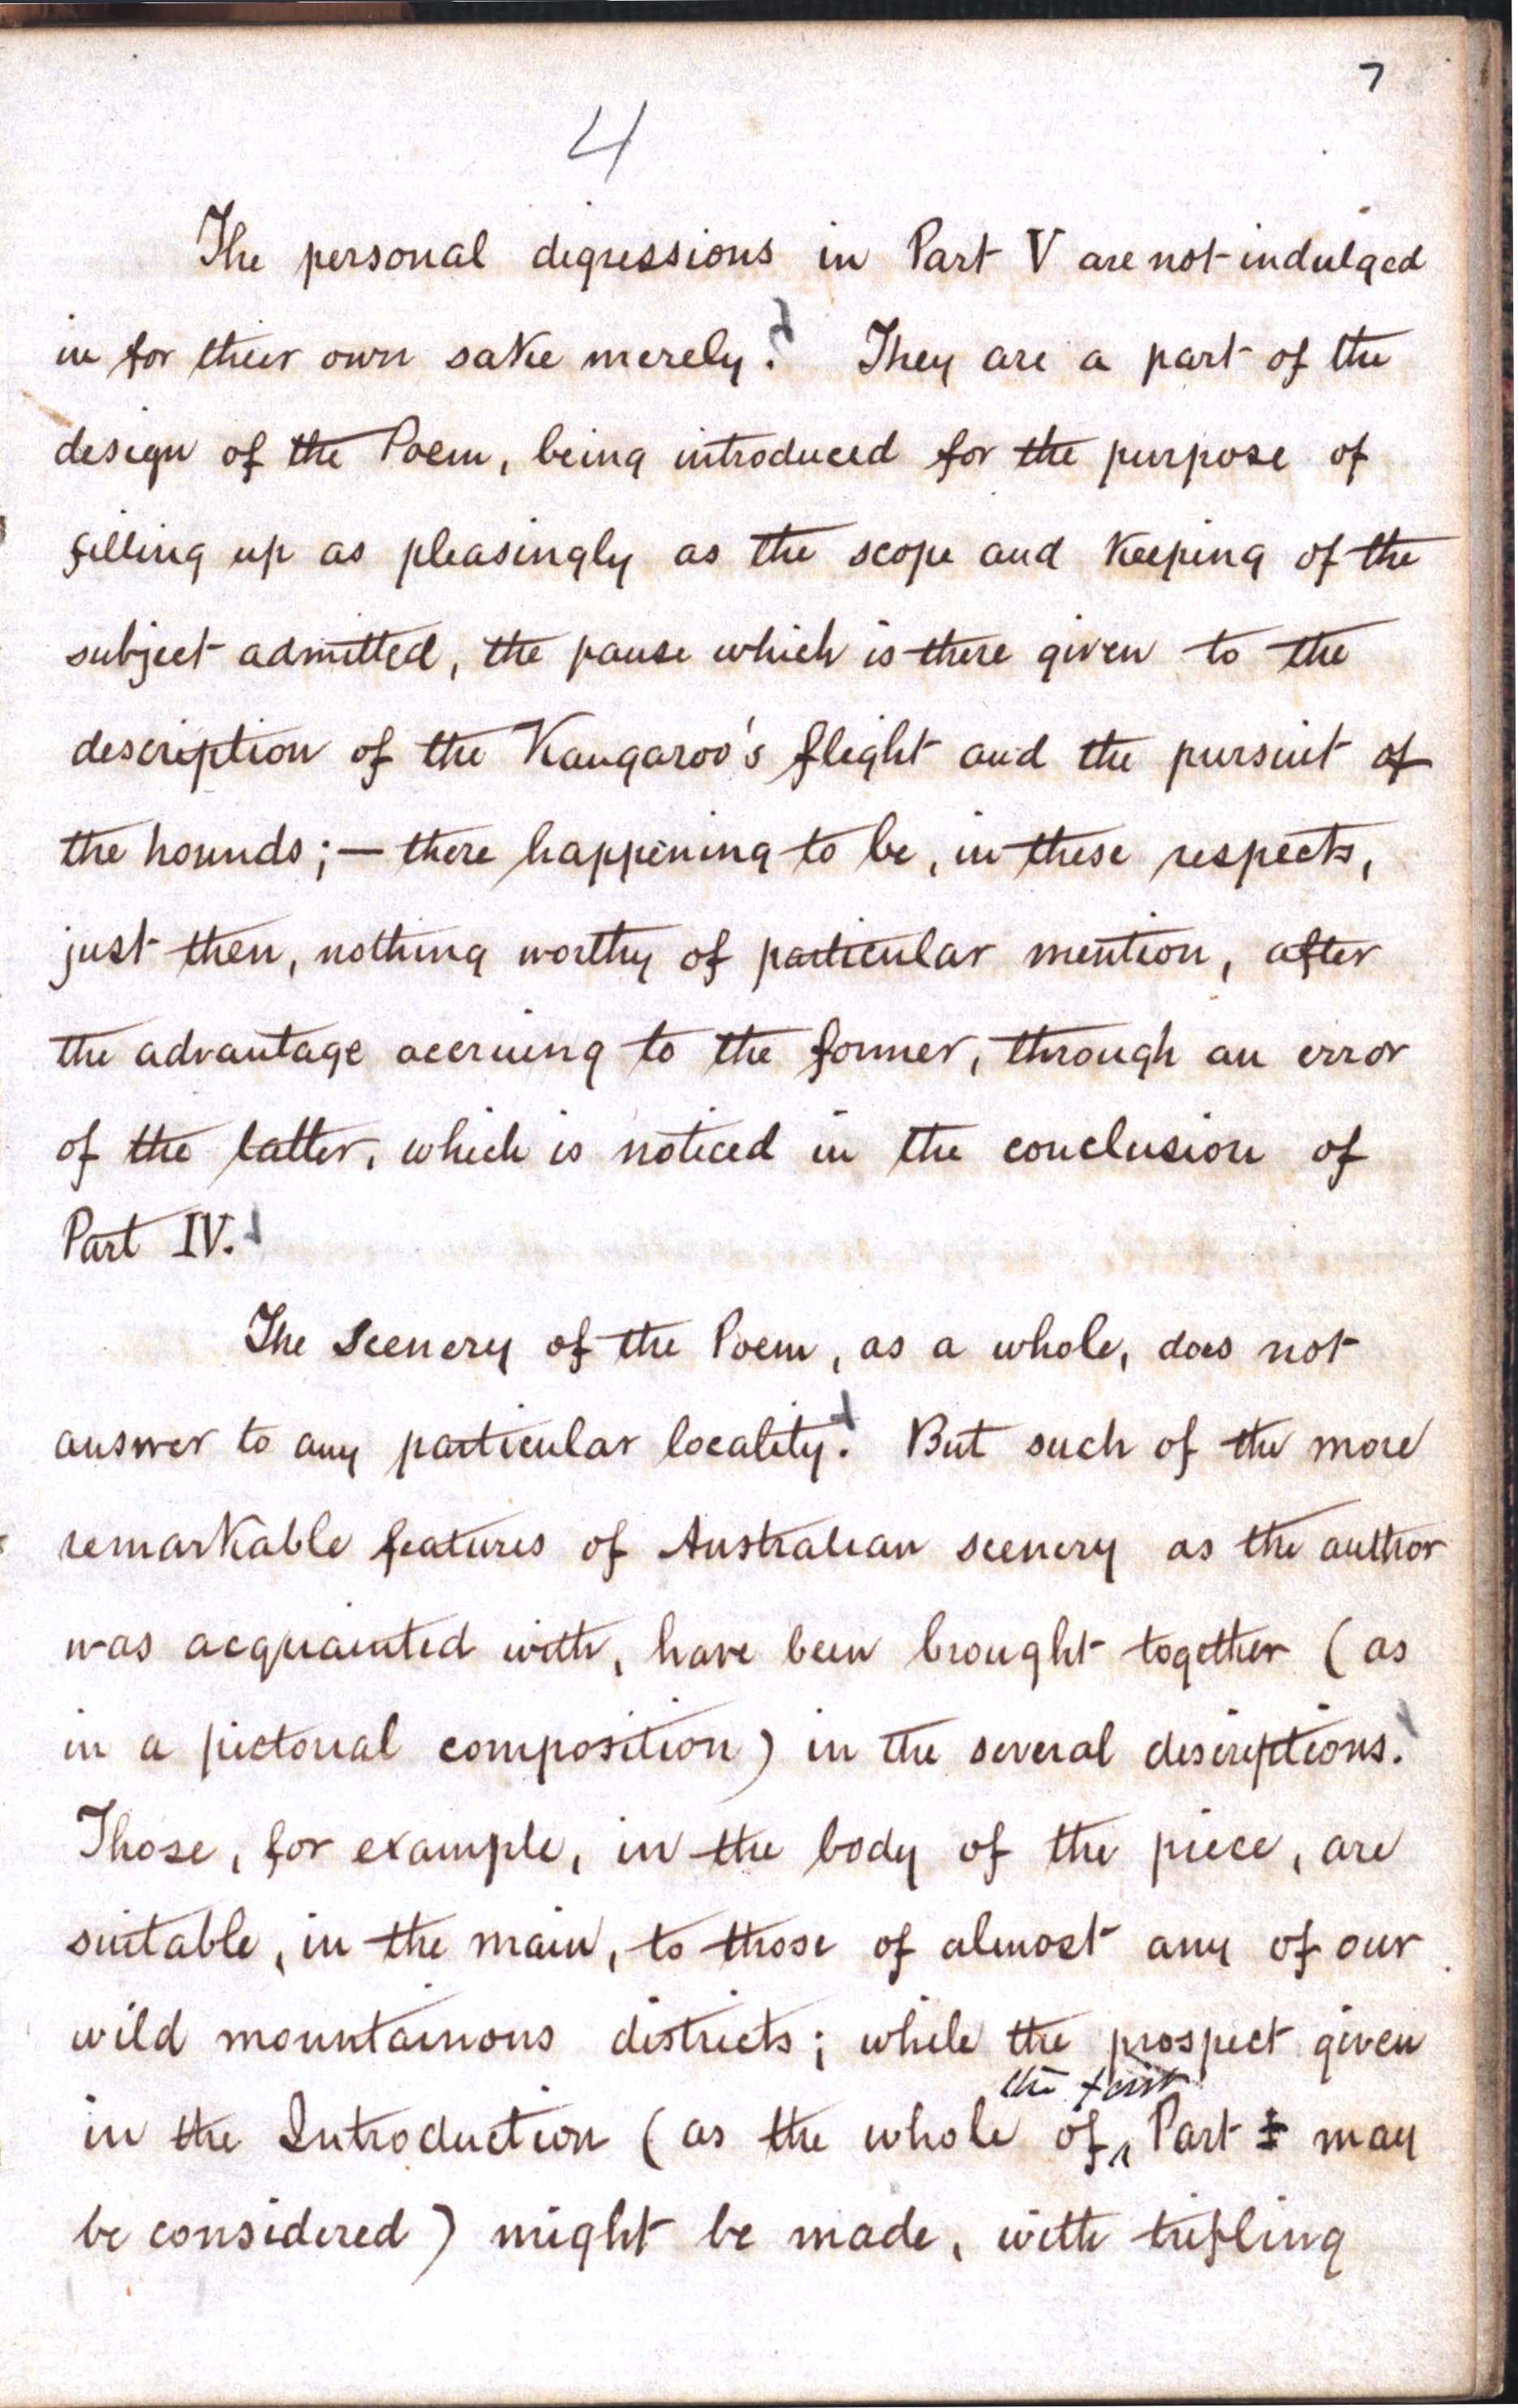 7
4
The personal digressions in Part V are not indulged
in for their own sake merely. They are a part of the
design of the Poem, being introduced for the purpose of
filling up as pleasingly as the scope and keeping of the
subject admitted, the pause which is there given to the
description of the Kangaroo's flight and the pursuit of
the hounds; — there happening to be, in these respects,
just then, nothing worthy of particular mention, after
the advantage accruing to the former, through an error
of the latter, which is noticed in the conclusion of
Part IV.
The Scenery of the Poem, as a whole, does not
answer to any particular locality. But such of the more
remarkable features of Australian scenery as the author
was acquainted with, have been brought together (as
in a pictorial composition) in the several descriptions.
Those, for example, in the body of the piece, are
suitable, in the main, to those of almost any of our
wild mountainous districts; while the prospect given
the first
in the Introduction (as the whole of Part I may
be considered) might be made, with trifling